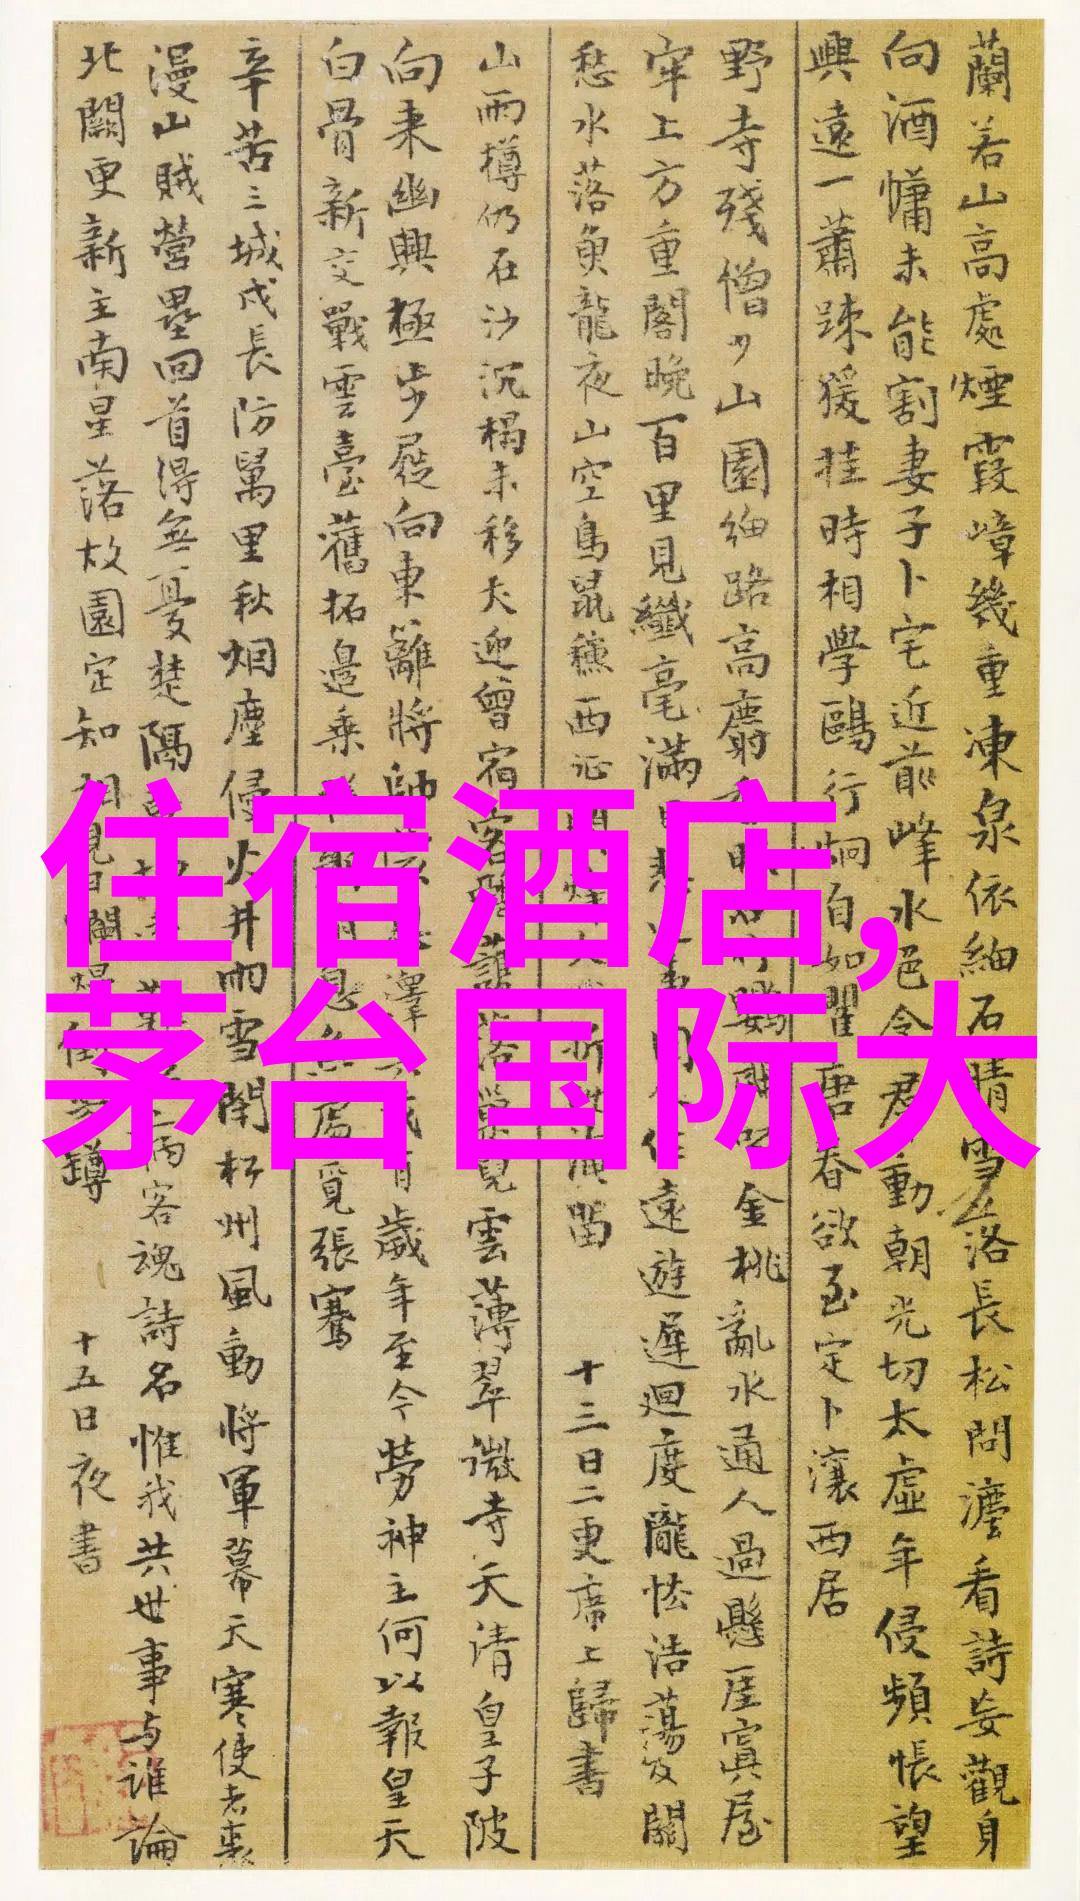 蘭若山高處煙霞嶂幾重凍泉依細石晴雪落長松問灋看詩妄觀身
向酒慵未能割妻子卜宅近前峰水色含羣動朝光切太虛年侵頻悵望
興遠一蕭踈猨挂時相學鷗行炯自如瞿唐春欲至定卜瀼西居
野寺殘僧少山園細路高麝香 金桃亂水通人過懸崖寘屋
牢上方重閣晚百里見纖毫滿目悲 遠遊遲迴度隴怯浩蕩及關
愁水落魚龍夜山空鳥鼠穐西 留 十三日二更席上歸書
山雨樽仍在沙沉榻未移犬迎曾宿客 落 雲薄翠微寺天清皇子陂
向来幽興極步屧向東籬將帥 澤 有歲年至今勞神主何以報皇天
白骨新交戰雲臺舊拓邊乗 覓張騫
辛苦三城戍長防萬里秋烟塵侵火井雨雪閉松州風動將軍幕天寒使者裘
漫山賊營壘回首得無憂楚隅 客魂詩名惟我共世事与誰論
北闕更新主南星落故園定知相見日 倒芳罇 十五日夜書
住宿酒店,
茅台国际大